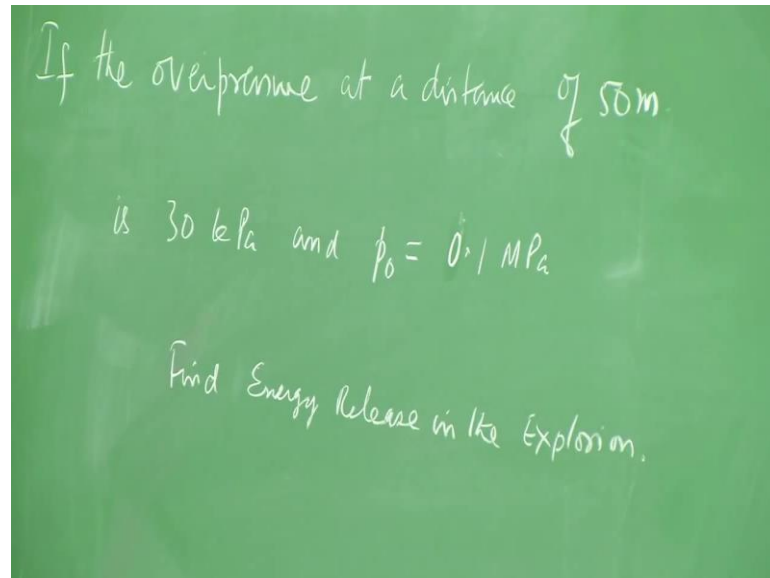 If the overpressure at a distance of 50m.
is 30 kPa and p₀ = 0.1 MPa
Find Energy Release in the Explosion.